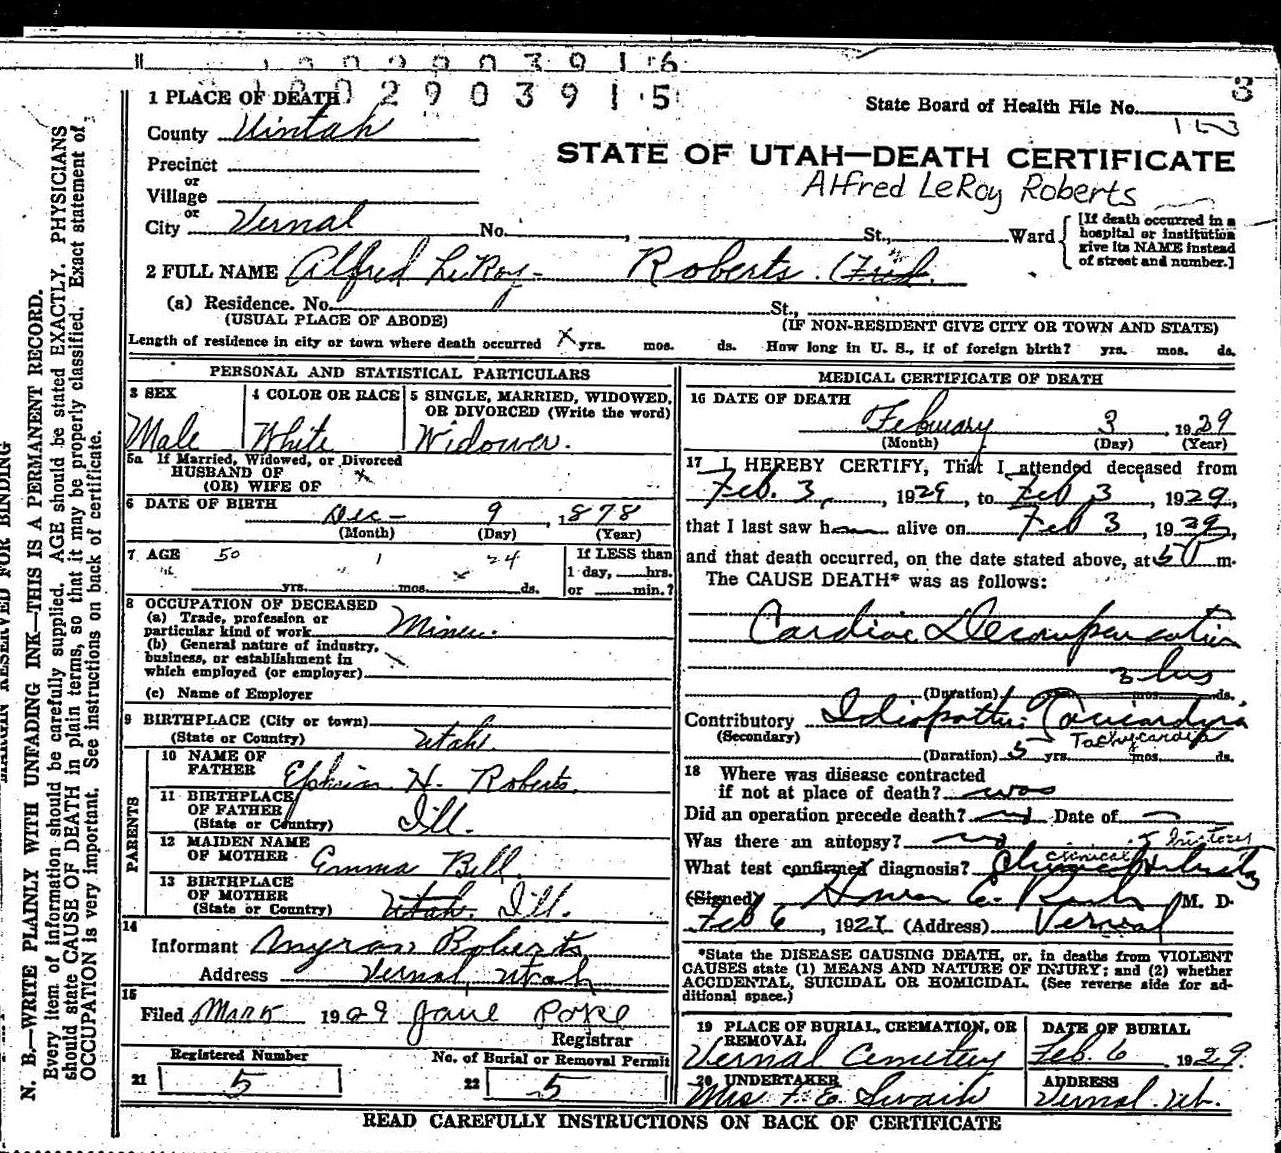 1 0 0 2 9 0 0 3 9 1 6
1 0 0 2 9 0 3 9 1 5
3
1 PLACE OF DEATH
State Board of Health File No.
County Uintah
STATE OF UTAH—DEATH CERTIFICATE
Precinct
Alfred LeRoy Roberts
or
Village
or
City Vernal No. , St., Ward
[If death occurred in a
hospital or institution
give its NAME instead
of street and number.]
2 FULL NAME Alfred LeRoy- Roberts (Fred.
(a) Residence. No. St.,
(USUAL PLACE OF ABODE) (IF NON-RESIDENT GIVE CITY OR TOWN AND STATE)
Length of residence in city or town where death occurred x yrs. mos. ds. How long in U. S., if of foreign birth? yrs. mos. ds.
PERSONAL AND STATISTICAL PARTICULARS
3 SEX 4 COLOR OR RACE 5 SINGLE, MARRIED, WIDOWED,
OR DIVORCED (Write the word)
Male White Widower.
5a If Married, Widowed, or Divorced
HUSBAND OF x
(OR) WIFE OF
6 DATE OF BIRTH Dec- 9, 1878
(Month) (Day) (Year)
7 AGE 50 1 24 If LESS than
yrs. mos. ds. 1 day, hrs.
or min.?
8 OCCUPATION OF DECEASED
(a) Trade, profession or
particular kind of work Miner.
(b) General nature of industry,
business, or establishment in
which employed (or employer)
(c) Name of Employer
9 BIRTHPLACE (City or town)
(State or Country) Utah.
PARENTS
10 NAME OF
FATHER Ephriam H. Roberts.
11 BIRTHPLACE
OF FATHER
(State or Country) Ill.
12 MAIDEN NAME
OF MOTHER Emma Bell.
13 BIRTHPLACE
OF MOTHER
(State or Country) Utah. Ill.
14
Informant Myran Roberts
Address Vernal, Utah
15
Filed Mar 5 1929 Jane Pope
Registrar
Registered Number No. of Burial or Removal Permit
21 5 22 5
MEDICAL CERTIFICATE OF DEATH
16 DATE OF DEATH
Febuary 3, 1929
(Month) (Day) (Year)
17 I HEREBY CERTIFY, That I attended deceased from
Feb. 3, 1929, to Feb 3, 1929,
that I last saw h alive on Feb 3, 1929,
and that death occurred, on the date stated above, at m.
The CAUSE DEATH* was as follows:
Cardiac Decompensation
3 hrs
(Duration) yrs. mos. ds.
Contributory Idiopathic
(Secondary) Tachycardia
(Duration) 5 yrs. mos. ds.
18 Where was disease contracted
if not at place of death?
Did an operation precede death? no Date of
Was there an autopsy? no
& history
What test confirmed diagnosis? clinical
(Signed) M. D.
Feb 6, 1929 (Address) Vernal
*State the DISEASE CAUSING DEATH, or, in deaths from VIOLENT
CAUSES state (1) MEANS AND NATURE OF INJURY; and (2) whether
ACCIDENTAL, SUICIDAL OR HOMICIDAL. (See reverse side for ad-
ditional space.)
19 PLACE OF BURIAL, CREMATION, OR
REMOVAL
Vernal Cemetery
DATE OF BURIAL
Feb. 6 1929.
20 UNDERTAKER
Mrs F. E. Swain
ADDRESS
Vernal. Ut.
READ CAREFULLY INSTRUCTIONS ON BACK OF CERTIFICATE
MARGIN RESERVED FOR BINDING
N. B.—WRITE PLAINLY WITH UNFADING INK—THIS IS A PERMANENT RECORD.
Every item of information should be carefully supplied. AGE should be stated EXACTLY. PHYSICIANS
should state CAUSE OF DEATH in plain terms, so that it may be properly classified. Exact statement of
OCCUPATION is very important. See instructions on back of certificate.